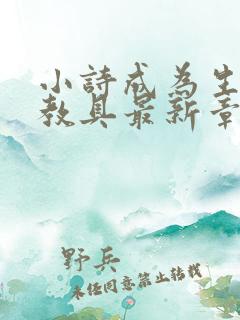 小詩成為生
教具最新章
野兵
未经同意禁止转载